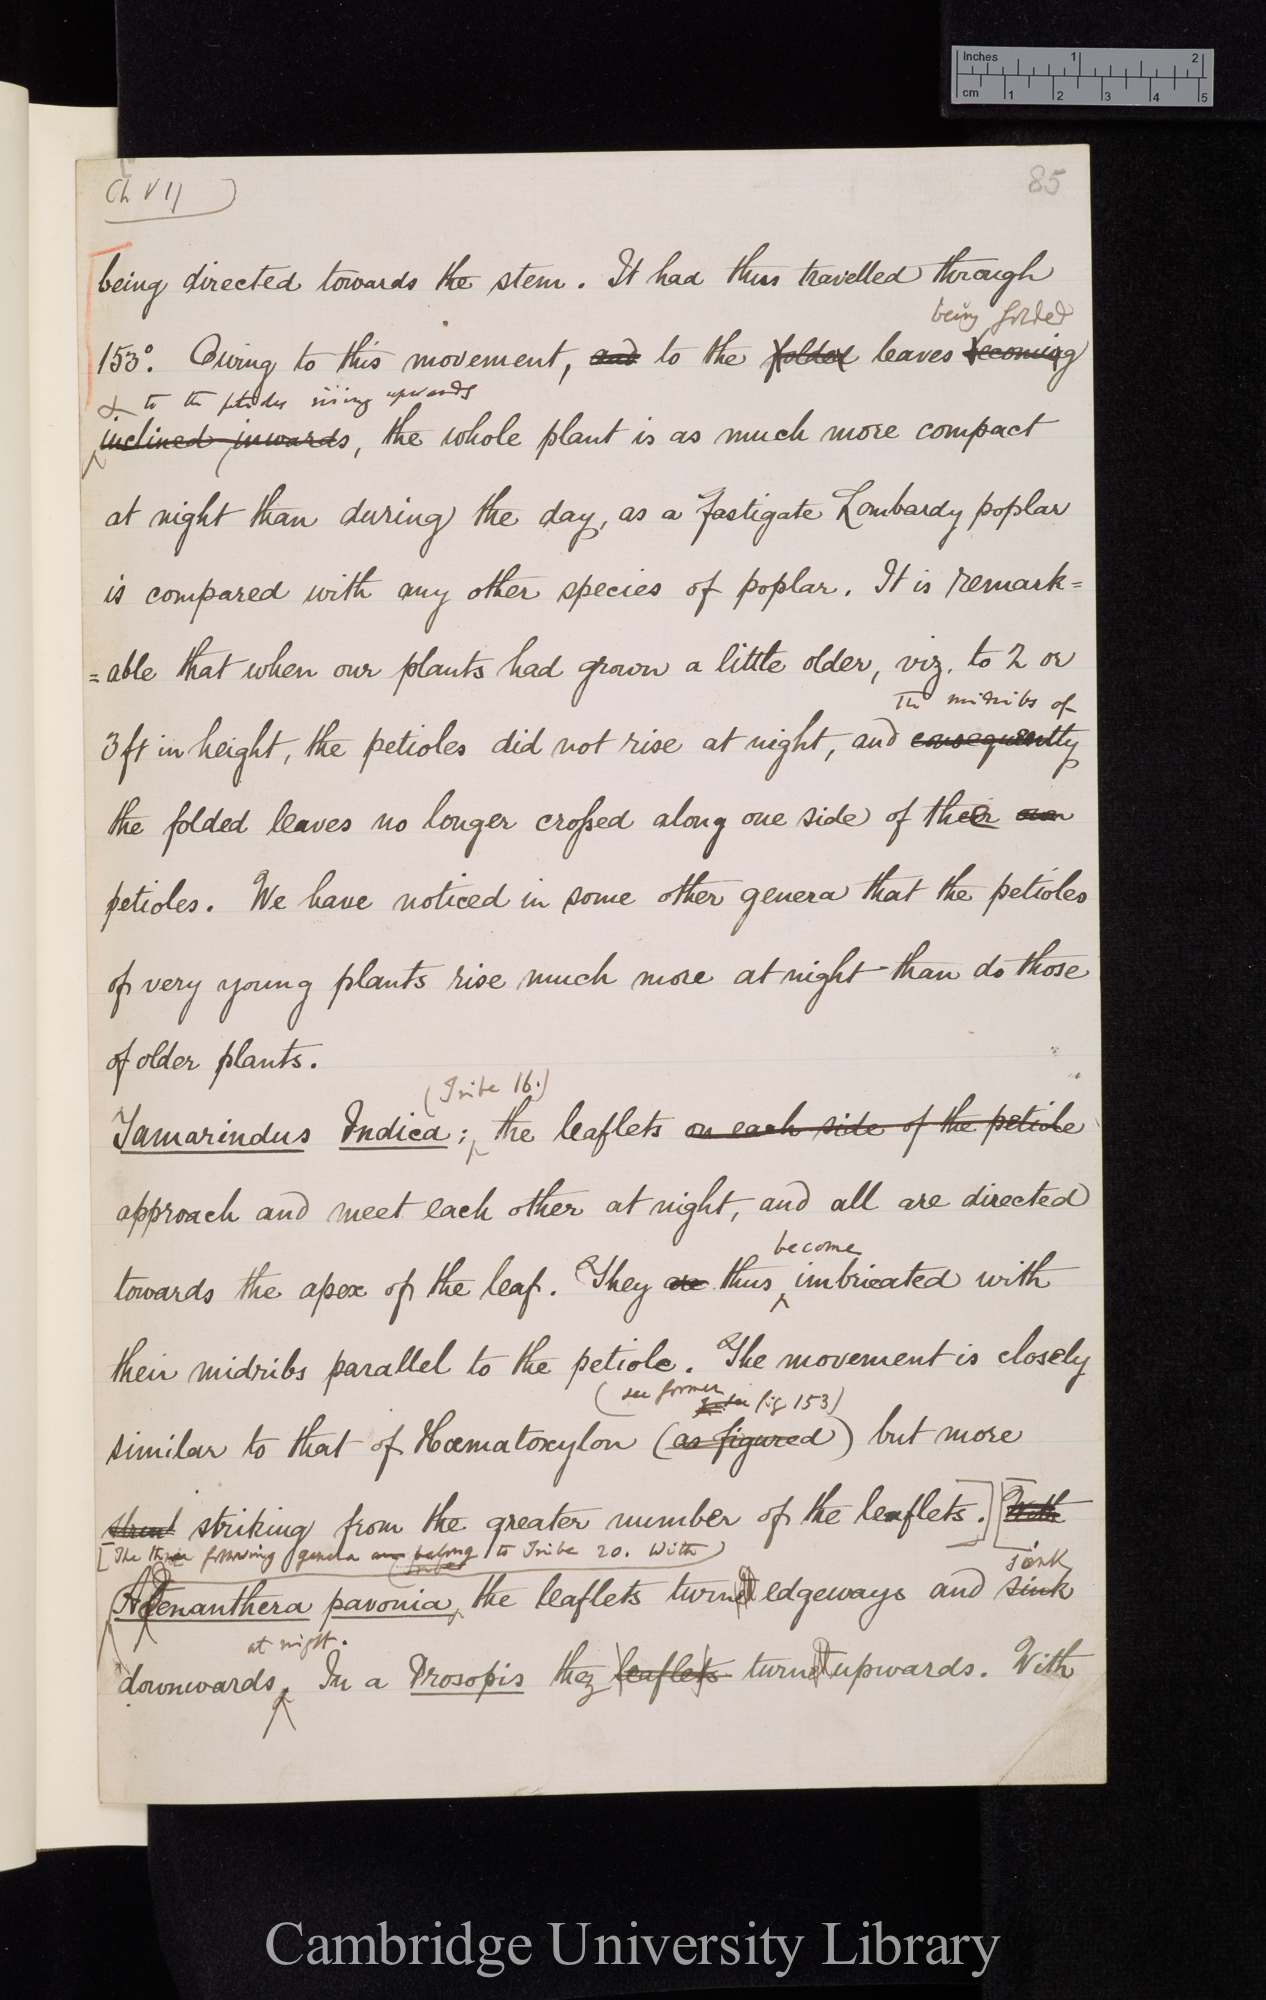 Inches 1 2
cm 1 2 3 4 5
Ch VII
85
being directed towards the stem. It had thus travelled through
being folded
153°. Owing to this movement, and to the folded leaves becoming
& to the petioles rising upwards
inclined inwards, the whole plant is as much more compact
at night than during the day, as a fastigate Lombardy poplar
is compared with any other species of poplar. It is remark=
=able that when our plants had grown a little older, viz. to 2 or
The midribs of
3 ft in height, the petioles did not rise at night, and consequently
the folded leaves no longer crossed along one side of their own
petioles. We have noticed in some other genera that the petioles
of very young plants rise much more at night than do those
of older plants.
(Tribe 16.)
Tamarindus Indica; the leaflets on each side of the petiole
approach and meet each other at night, and all are directed
become
towards the apex of the leaf. They are thus imbricated with
their midribs parallel to the petiole. The movement is closely
(see former see fig 153)
similar to that of Hæmatoxylon (as figured) but more
striking from the greater number of the leaflets.] [With
[The three following genera belong to Tribe 20. With
sank
Adenanthera pavonia, the leaflets turned edgeways and sink
at night.
downwards. In a Prosopis they leaflets turned upwards. With
Cambridge University Library